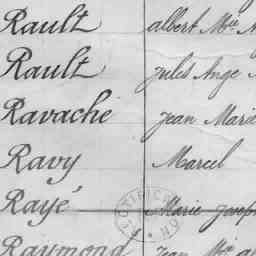 Rault albert Mce
Rault Jules Ange
Ravache Jean Marie
Ravy Marcel
Rayé Marie Joseph
Raymond Jean Mie